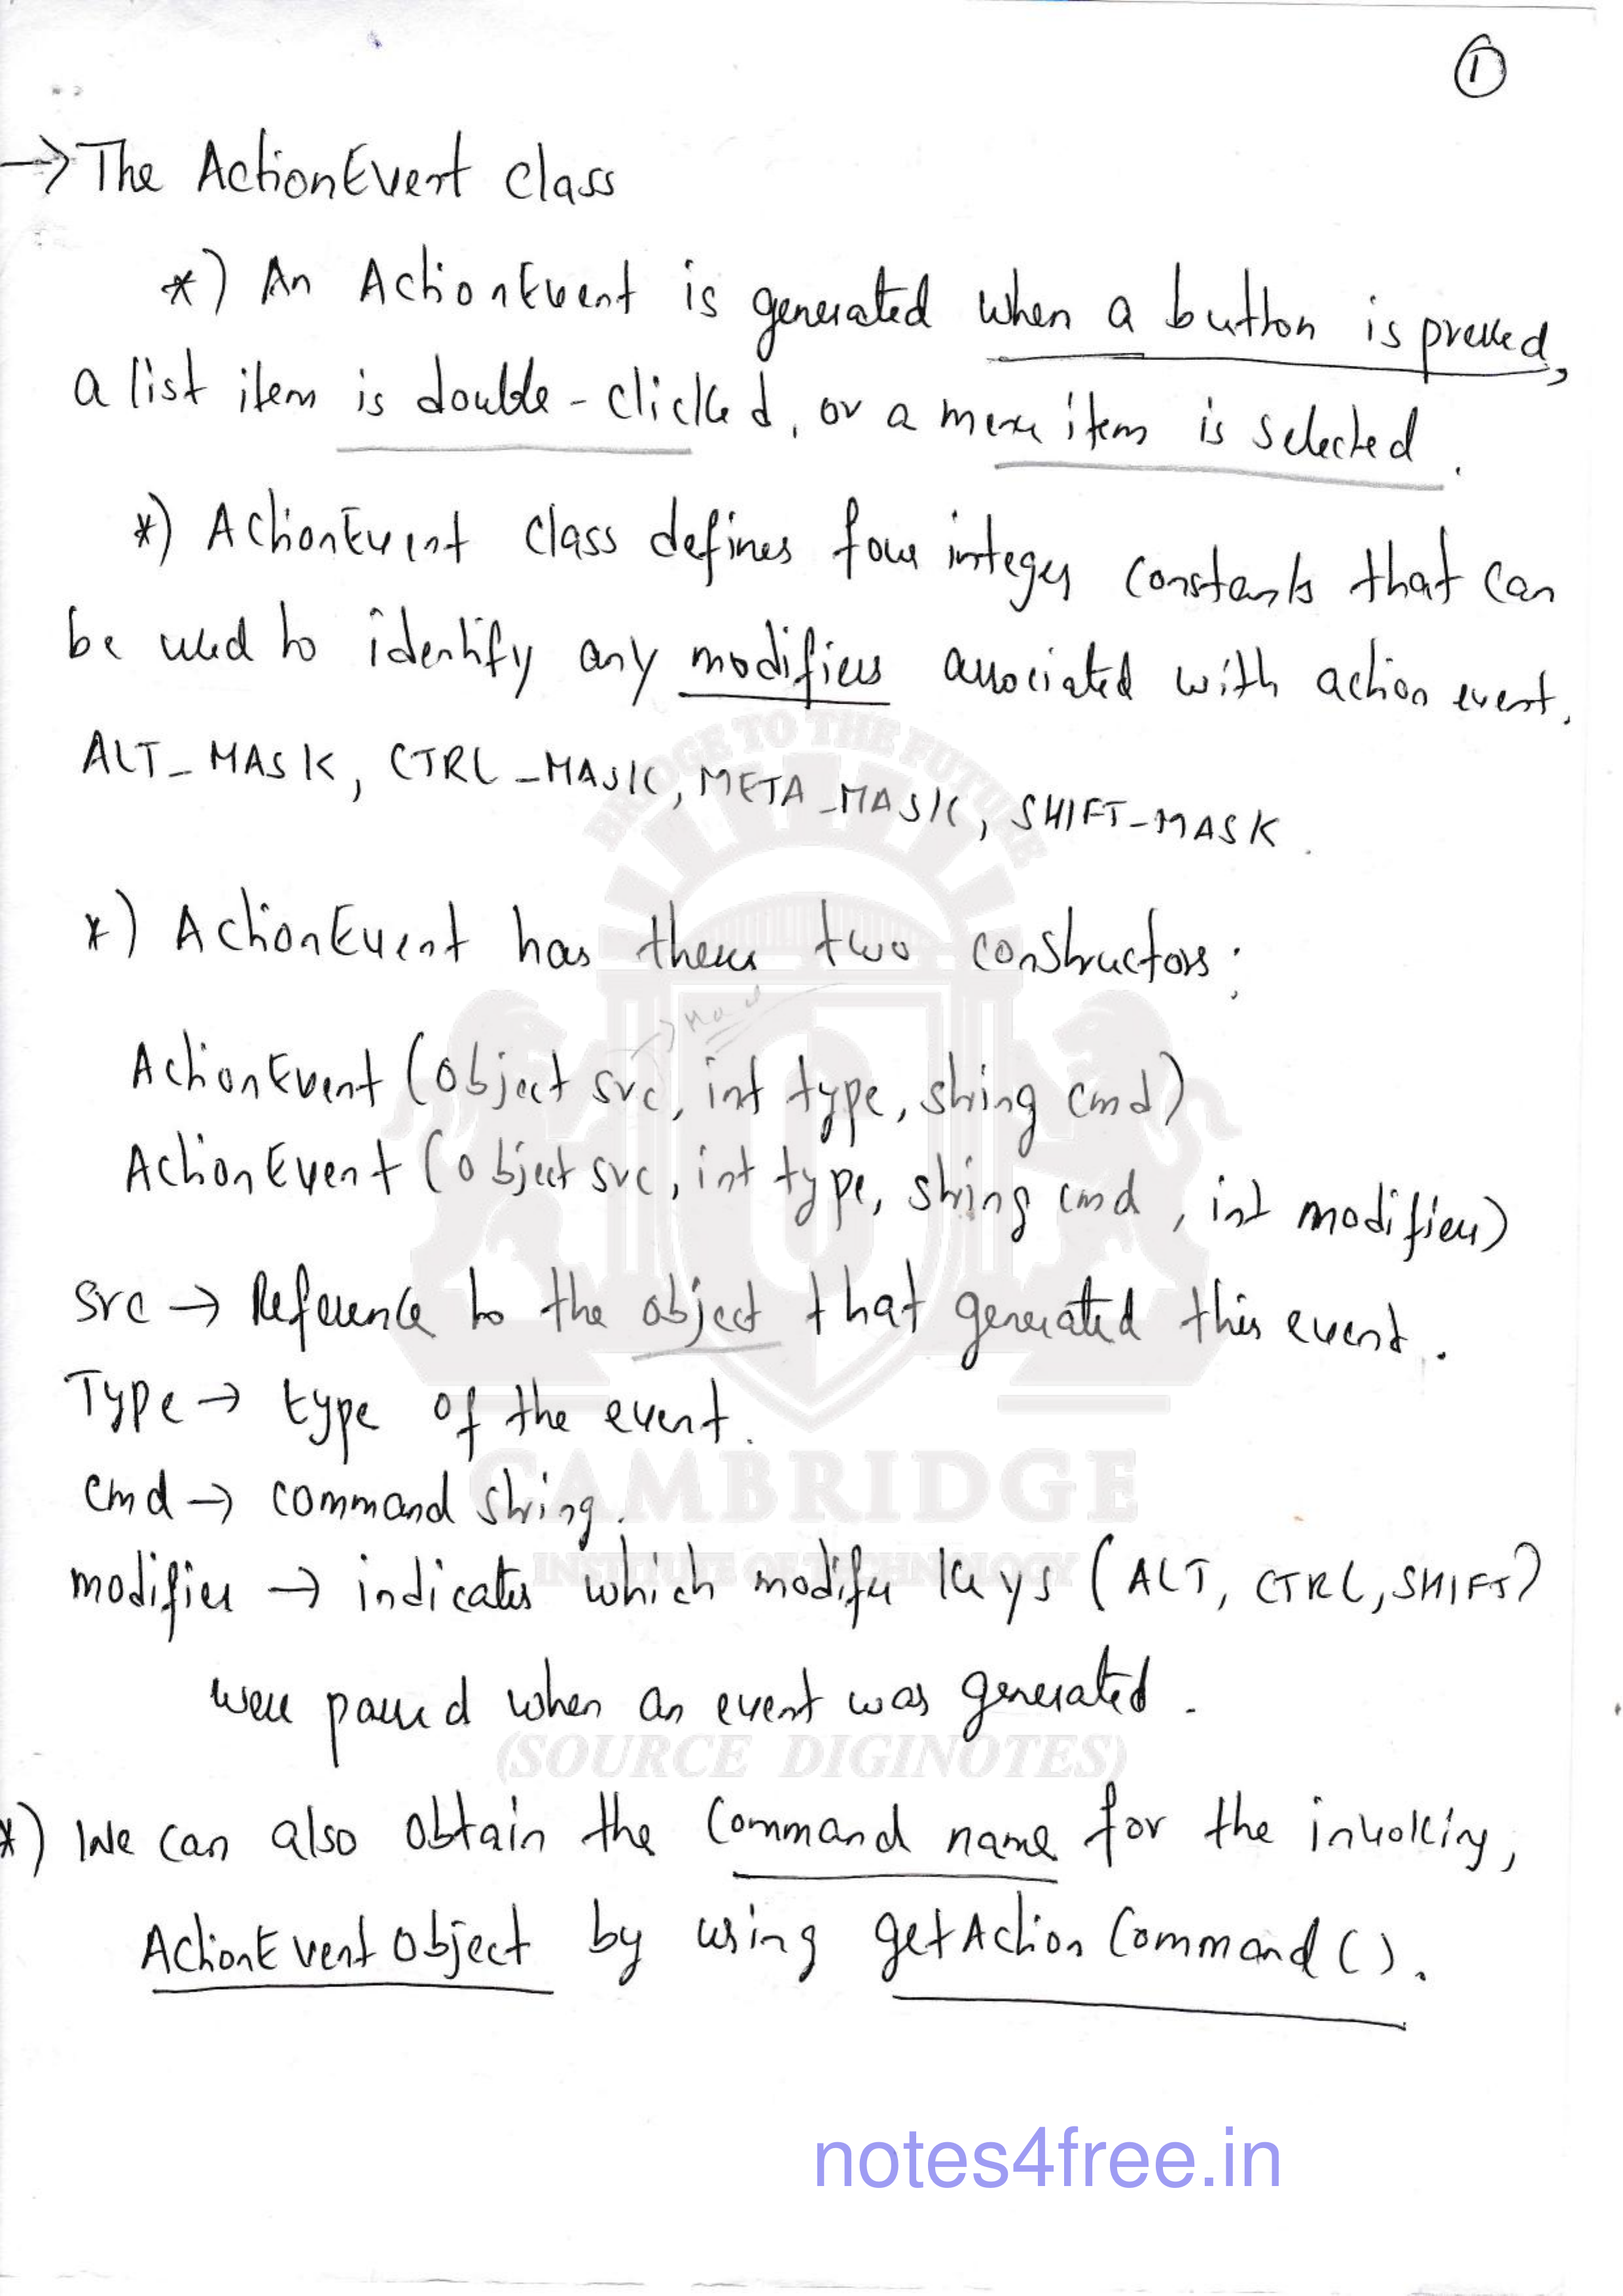 1
→ The ActionEvent class
*) An ActionEvent is generated when a button is pressed,
a list item is double-clicked, or a menu item is selected.
*) ActionEvent class defines four integer constants that can
be used to identify any modifiers associated with action event.
ALT_MASK, CTRL_MASK, META_MASK, SHIFT_MASK.
*) ActionEvent has these two constructors:
ActionEvent (Object src, int type, string cmd)
ActionEvent (Object src, int type, string cmd, int modifier)
src → Reference to the object that generated this event.
Type → type of the event.
cmd → command string.
modifier → indicates which modifier keys (ALT, CTRL, SHIFT)
were passed when an event was generated.
*) We can also obtain the Command name for the invoking,
ActionEvent Object by using getActionCommand().
BRIDGE TO THE FUTURE
CAMBRIDGE
INSTITUTE OF TECHNOLOGY
(SOURCE DIGINOTES)
notes4free.in